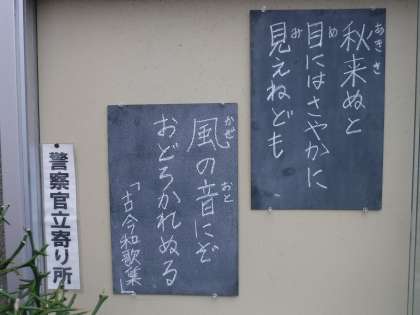 秋来ぬと
目にはさやかに
見えねども
風の音にぞ
おどろかれぬる
「古今和歌集」
警察官立寄り所